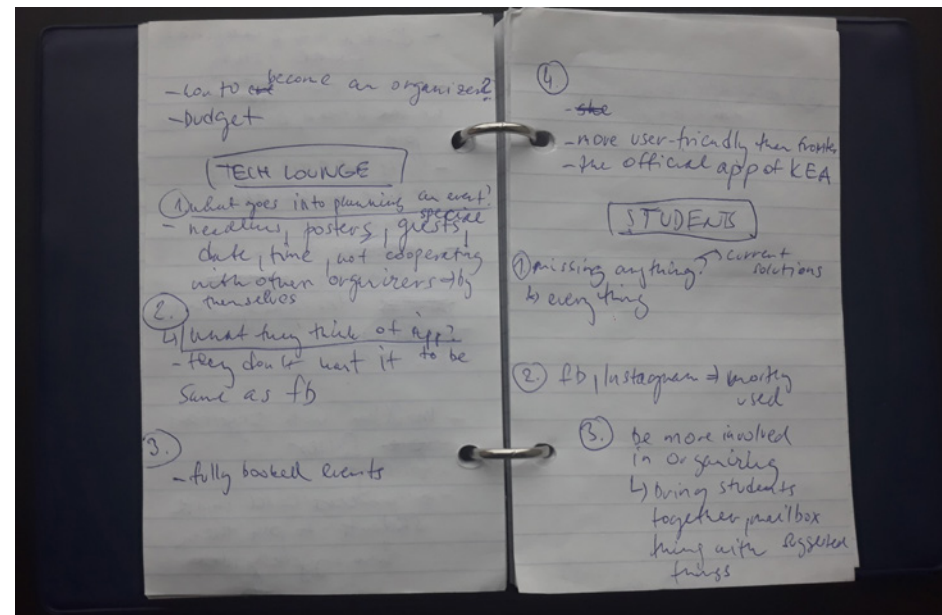 - how to become an organizer?
- budget
TECH LOUNGE
1 what goes into planning an event?
- headlines, posters, special guests,
date, time, not cooperating
with other organizers → by
themselves
2.
↳ what they think of app?
- they don't want it to be
same as fb
3.
- fully booked events
4.
- more user-friendly then fronter
- the official app of KEA
STUDENTS
1 missing anything? → current
solutions
↳ everything
2. fb, Instagram → mostly
used
3. be more involved
in organizing
↳ bring students
together, mailbox
thing with suggested
things